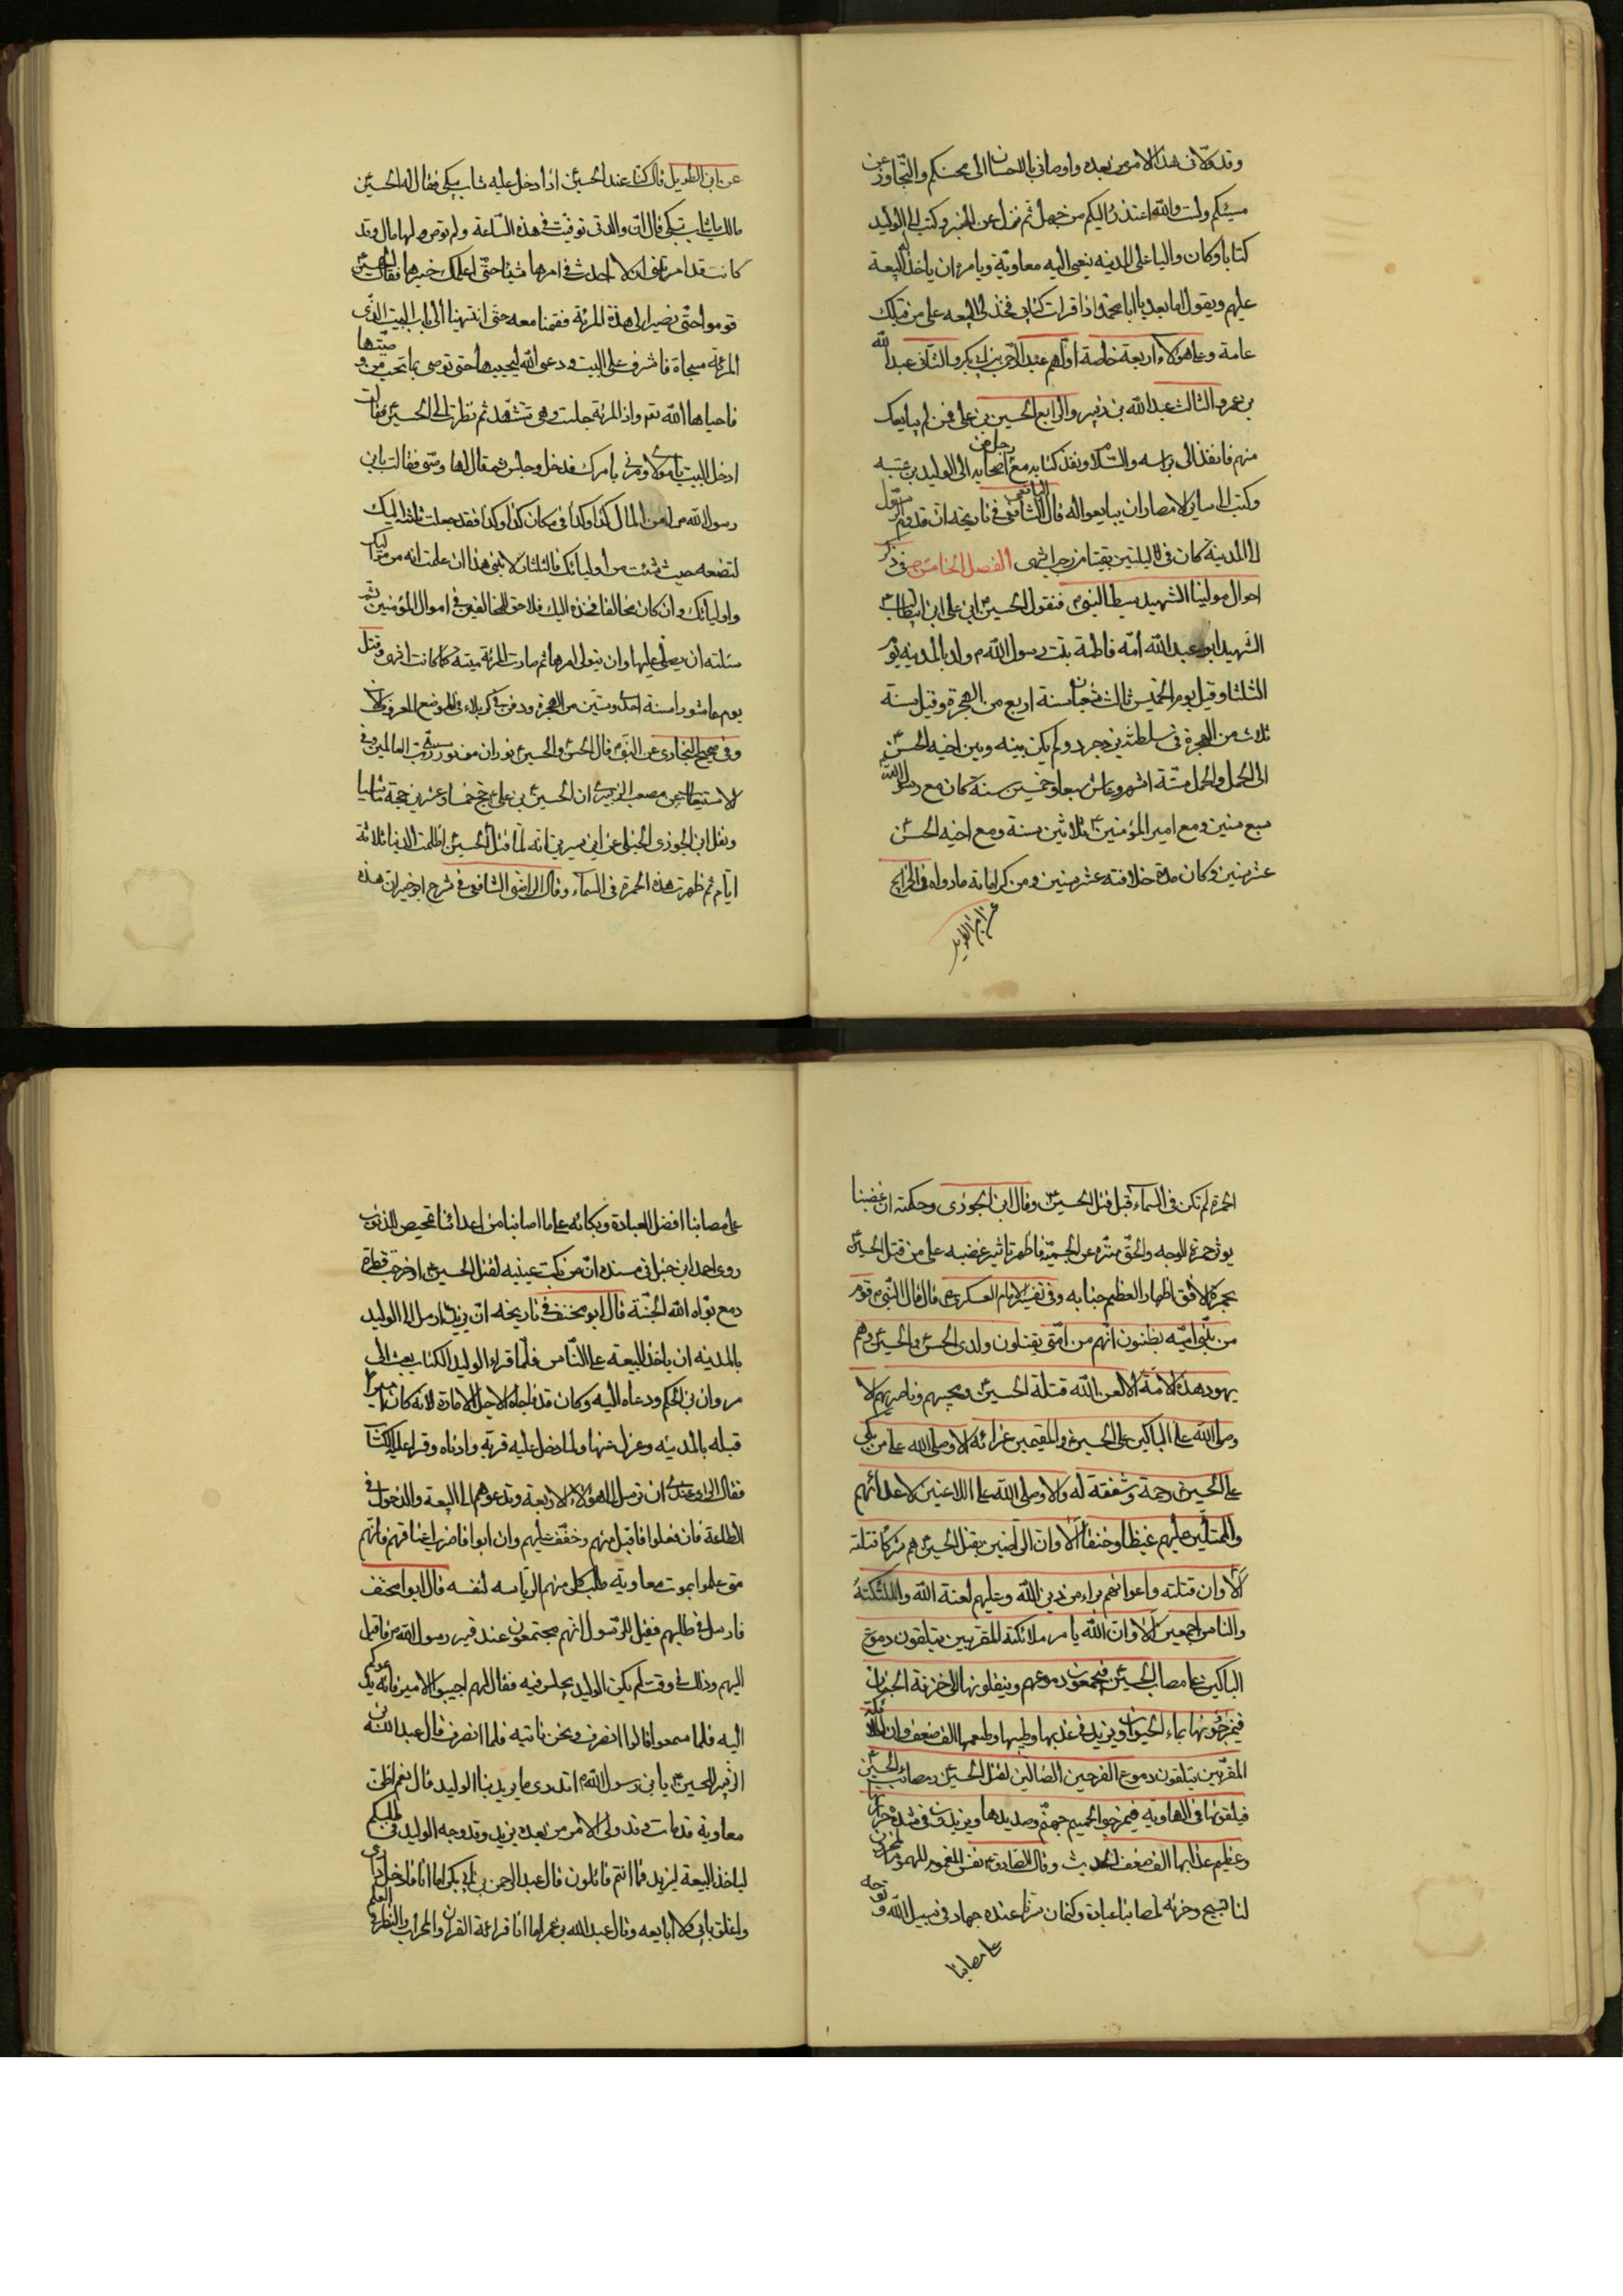 وقد ولّانى هذا الامر من بعده واوصانى بالاحسان الى محسنكم والتّجاوز عن
مسيئكم ولست والله اعتذر اليكم من جهل ثم نزل عن المنبر وكتب الى الوليد
كتابا وكان واليا على المدينه ينعى اليه معاوية ويامره ان ياخذ له البيعة
عليهم ويقول اما بعد يا ابا محمد فاذا قرات كتابى فخذ لى البيعه على من قبلك
عامة وعلى هؤلاء اربعة خاصة اوّلهم عبد الرّحمن بن ابى بكر والثّانى عبد الله
بن عمر والثالث عبد الله بن زبير والرابع الحسين بن على فمن لم يبايعك
منهم فانفذ الى براسه والسّلام ونفذ كتابه مع رجل من اصحابه الى الوليد بن عتبه
وكتب الى ساير الامصار ان يبايعوا له قال اليافعى الشافعى فى تاريخه ان قدوم الرّسول
الى المدينة كان فى لليلتين بقيتا من رجب انتهى الفصل الخامس فى ذكر
احوال مولينا الشهيد سبط النبى فنقول الحسين ابن على ابن ابيطالب
الشهيد ابو عبد الله امّه فاطمة بنت رسول الله ولد بالمدينه يوم
الثلثا وقيل يوم الخميس ثالث شعبان سنة اربع من الهجرة وقيل سنة
ثلاث من الهجرة فى سلطنة يزدجرد ولم يكن بينه وبين اخيه الحسن
الى الحمل والحمل ستّة اشهر وعاش سبعا وخمسين سنة كان مع رسول الله
سبع سنين ومع امير المؤمنين ثلاثين سنة ومع اخيه الحسن
عشر سنين وكان مدة خلافته عشر سنين ومن كراماته مارواه فى الخرايج
عن ابن الطويل
عن ابن الطويل قال كنّا عند الحسين اذا دخل عليه شاب يبكى فقال له الحسين
مالك يا شاب تبكى قال انّ والدتى توفيت فى هذه السّاعة ولم توص ولها مال وقد
كانت قد امرتنى ان لا احدث فى امرها شيئا حتّى اعلمك خبرها فقال الحسين
قوموا حتّى نصير الى هذه المرئة فقمنا معه حتى انتهينا الى باب البيت الّذى
المرئة مسجاة فاشرف على البيت ودعى الله ليحييها حتى توصى بما تحب من وصيّتها
فاحياها الله تعم واذ المرئة جلست وهى تتشهد ثم نظرت الى الحسين فقالت
ادخل البيت يا مولاى ومرنى بامرك فدخل وجلس ثم قال لها وصّى فقالت يابن
رسول الله من المال كذا وكذا فى مكان كذا وكذا فقد جعلت ثلثه اليك
لتضعه حيث شئت من اوليائك والثلثان لابنى هذا ان علمت انه من مواليك
واوليائك وان كان مخالفا فخذه اليك فلا حق للمخالفين فى اموال المؤمنين ثم
سئلته ان يصلى عليها وان يتولى امرها ثم صارت المرئة ميتة كما كانت انتهى وقتل
يوم عاشورا سنة احدى وستين من الهجرة ودفن فى كربلاء فى الموضع المعروف الان
وفى صحيح البخارى عن النّبى قال الحسن والحسين نوران من نور ربّ العالمين وفى
الاستيعاب عن مصعب الزبيرى ان الحسين بن على حج خمسا وعشرين حجة ماشيا
ونقل ابن الجوزى الحنبلى عن ابن سيرين انه لمّا قتل الحسين اظلمت الدنيا ثلاثة
ايّام ثم ظهرت هذه الحمرة فى السماء وقال الرافعى الشافعى فى شرح ابو خير ان هذه
الحمرة لم تكن فى السماء قبل قتل الحسين وقال ابن الجوزى وحكمته ان غضبنا
يوثر حمرة الوجه والحقّ منزه عن الجسميّة فاظهر تاثير غضبه على من قتل الحسين
بحمرة الافق اظهارا لعظيم جنايه وفى تفسير الامام العسكرى قال قال النّبى قوم
من بنى اميّه يظنون انّهم من امّتى يقتلون ولدى الحسن والحسين وهم
يهود هذه الامّة الا لعن الله قتلة الحسين ومحبيهم وناصريهم الا
وصلى الله على الباكين على الحسين والمقيمين عزائه الا وصلى الله على من بكى
على الحسين رحمة وشفقة له والا وصلى الله على اللاعنين لاعدائهم
والممتلئين عليهم غيظا وحنقا الا وان الرّاضين بقتل الحسين هم شركا قتلته
الا وان قتلته واعوانهم براء من دين الله وعليهم لعنة الله والملئكة
والناس اجمعين الا وان الله يامر ملائكته المقربين يتلقون دموع
الباكين على مصاب الحسين فيجمعون دموعهم وينقلونها الى خزنة الجنان
فيمزجونها بماء الحيوان ويزيد فى عذبها وطيبها وطعمها الف ضعف وان الملائكة
المقرّبين يتلقون دموع الفرحين الضالين لقتل الحسين ومصائب الحسين
فيلقونها فى الهاويه فيمزجوا بحميم جهنّم وصديدها ويزيدون فى شدة حرارتها
وعظيم عذابها الف ضعف الحديث وقال الصّادق نفس المغموم المهموم المحزون
لنا تسبيح وحزنه لمصائبنا عبادة وكتمان سرّنا عنده جهاد فى سبيل الله وتوجعه
على مصابنا
على مصابنا افضل العبادة وبكائه على ما اصابنا من اعدائنا تمحيص للذنوب
روى احمد ابن حنبل فى مسنده انّ من بكت عينيه لقتل الحسين او خرجت قطرة
دمع بوّاه الله الجنّة قال ابو مخنف فى تاريخه انّ يزيد ارسل الى الوليد
بالمدينه ان ياخذ البيعة على النّاس فلمّا قراء الوليد الكتاب بعث الى
مروان بن الحكم ودعاه اليه وكان قد فاجاه لاجل الامارة لانه كان اميرا
قبله بالمدينه وعزل عنها ولما دخل عليه قربه وادناه وقرا عليه الكتاب
فقال الراى عندى ان ترسل الى هؤلاء الاربعة وتدعوهم الى البيعة والدخول فى
الطاعة فان فعلوا فاقبل منهم وخفّف عليهم وان ابوا فاضرب اعناقهم فانهم
متى علموا بموت معاويه طلب كل منهم الرياسه لنفسه قال ابوا مخنف
فارسل فى طلبهم فقيل للرّسول انهم مجتمعون عند قبر رسول الله فاقبل
اليهم وذلك فى وقت لم يكن الوليد يجلس فيه فقال لهم اجيبوا الامير فانه يدعوكم
اليه فلما سمعوا قالوا انصرف ونحن ناتيه فلما انصرف قال عبد الله بن
الزبير للحسين يا ابن رسول الله اتدرى ما يريد بنا الوليد قال نعم اظن
معاوية قد مات وقد ولى الامر من بعده يزيد وقد وجه الوليد فى طلبكم
لياخذ البيعة ليزيد فما انتم قائلون قال عبد الرحمن بن ابى بكر اما انا فادخل دارى
واغلق بابى ولا ابايعه وقال عبد الله بن عمر اما انا قرائة القران والمحراب والنظر فى العلم